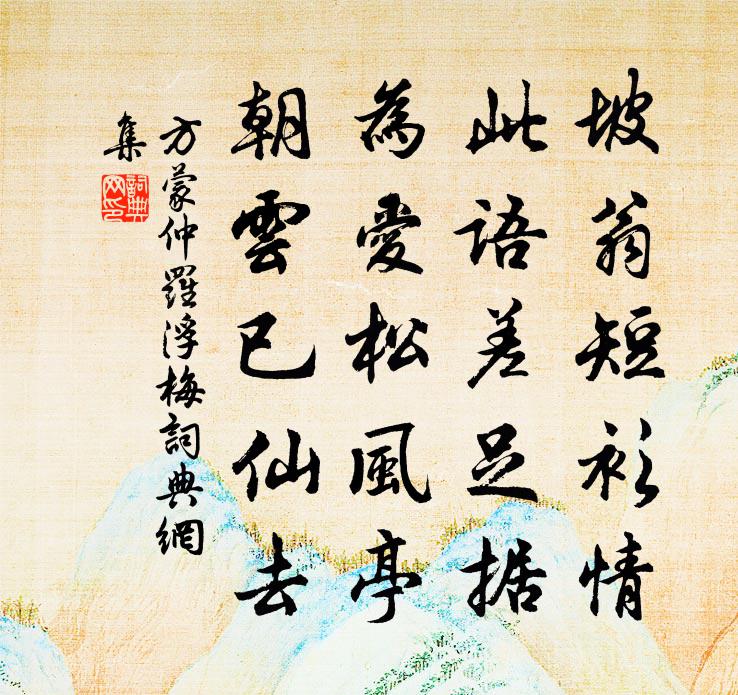 坡翁短衫情
此語差足據
為愛松風亭
朝雲已仙去
方蒙仲羅浮梅詞典網
集
詞典网印